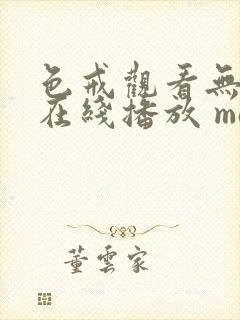 色戒觀看無
在綫播放 m
董雲家